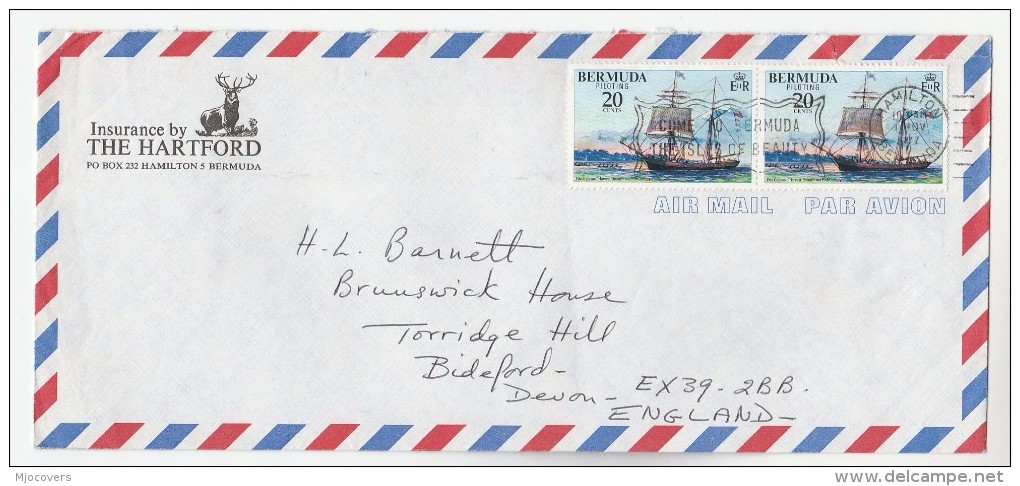 Insurance by
THE HARTFORD
PO BOX 232 HAMILTON 5 BERMUDA
BERMUDA
PILOTING
20
CENTS
EIIR
BERMUDA
PILOTING
20
CENTS
EIIR
COME TO BERMUDA
THE ISLES OF BEAUTY
HAMILTON
NOV
AIR MAIL PAR AVION
H. L. Barnett
Brunswick House
Torridge Hill
Bideford-
Devon- EX39-2BB.
ENGLAND-
Mjocovers
delcampe.net